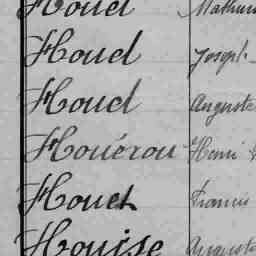 Houel Mathuri
Houel Joseph
Houel Auguste
Houérou Henri
Houet Francis
Houise Auguste